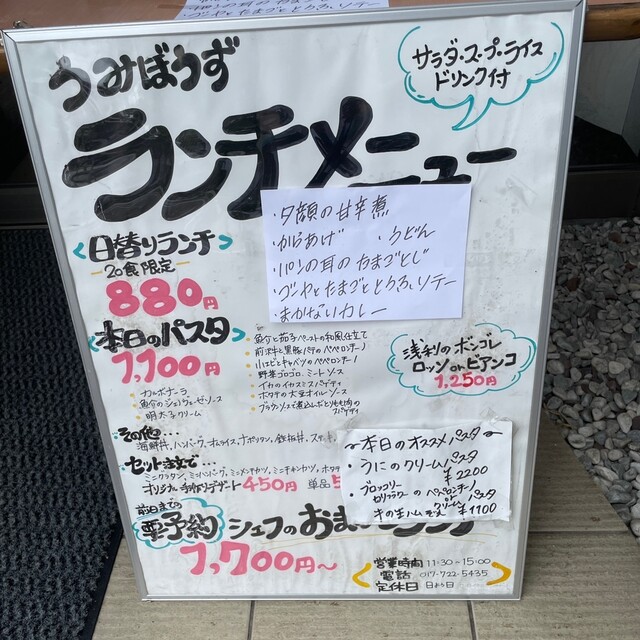 うみぼうず
ランチメニュー
サラダ・スープ・ライス
ドリンク付
・夕顔の甘辛煮
・からあげ ・うどん
・パンの耳のたまごとじ
・ゴーヤとたまごととりろ、ソテー
・まかないカレー
日替りランチ
20食限定
880円
本日のパスタ
1,100円
・カルボナーラ
・魚介のジェノヴェーゼソース
・明太子クリーム
・小エビとキャベツのペペロンチーノ
・野菜ゴロゴロ ミートソース
・イカのイカスミスパゲティ
・ホタテの大葉オイルソース
スパゲティ
浅利のボンゴレ
ロッソorビアンコ
1,250円
その他…
海鮮丼、ハンバーグ、オムライス、ナポリタン、鉄板丼、ステーキ
セット注文で…
ミニグラタン、ミニハンバーグ、ミニメンチカツ、ミニチキンカツ、ホタテ
オリジナル手作りデザート 450円 単品5
〜本日のオススメパスタ〜
・うにのクリームパスタ
¥2200
・ブロッコリー
ペペロンチーノ
パスタ
¥1100
前日までの
要予約 シェフのおまかせランチ
1,700円〜
営業時間 11:30-15:00
電話 017-722-5435
定休日 日よう日